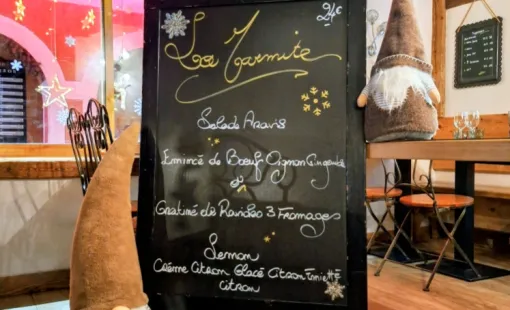 24€
La Marmite
Salade Aravis
Emincé de Boeuf Oignon Gingembre
et
Gratiné de Ravioles 3 Fromages
Lemon
Crème Citron Glacé Citron
Citron